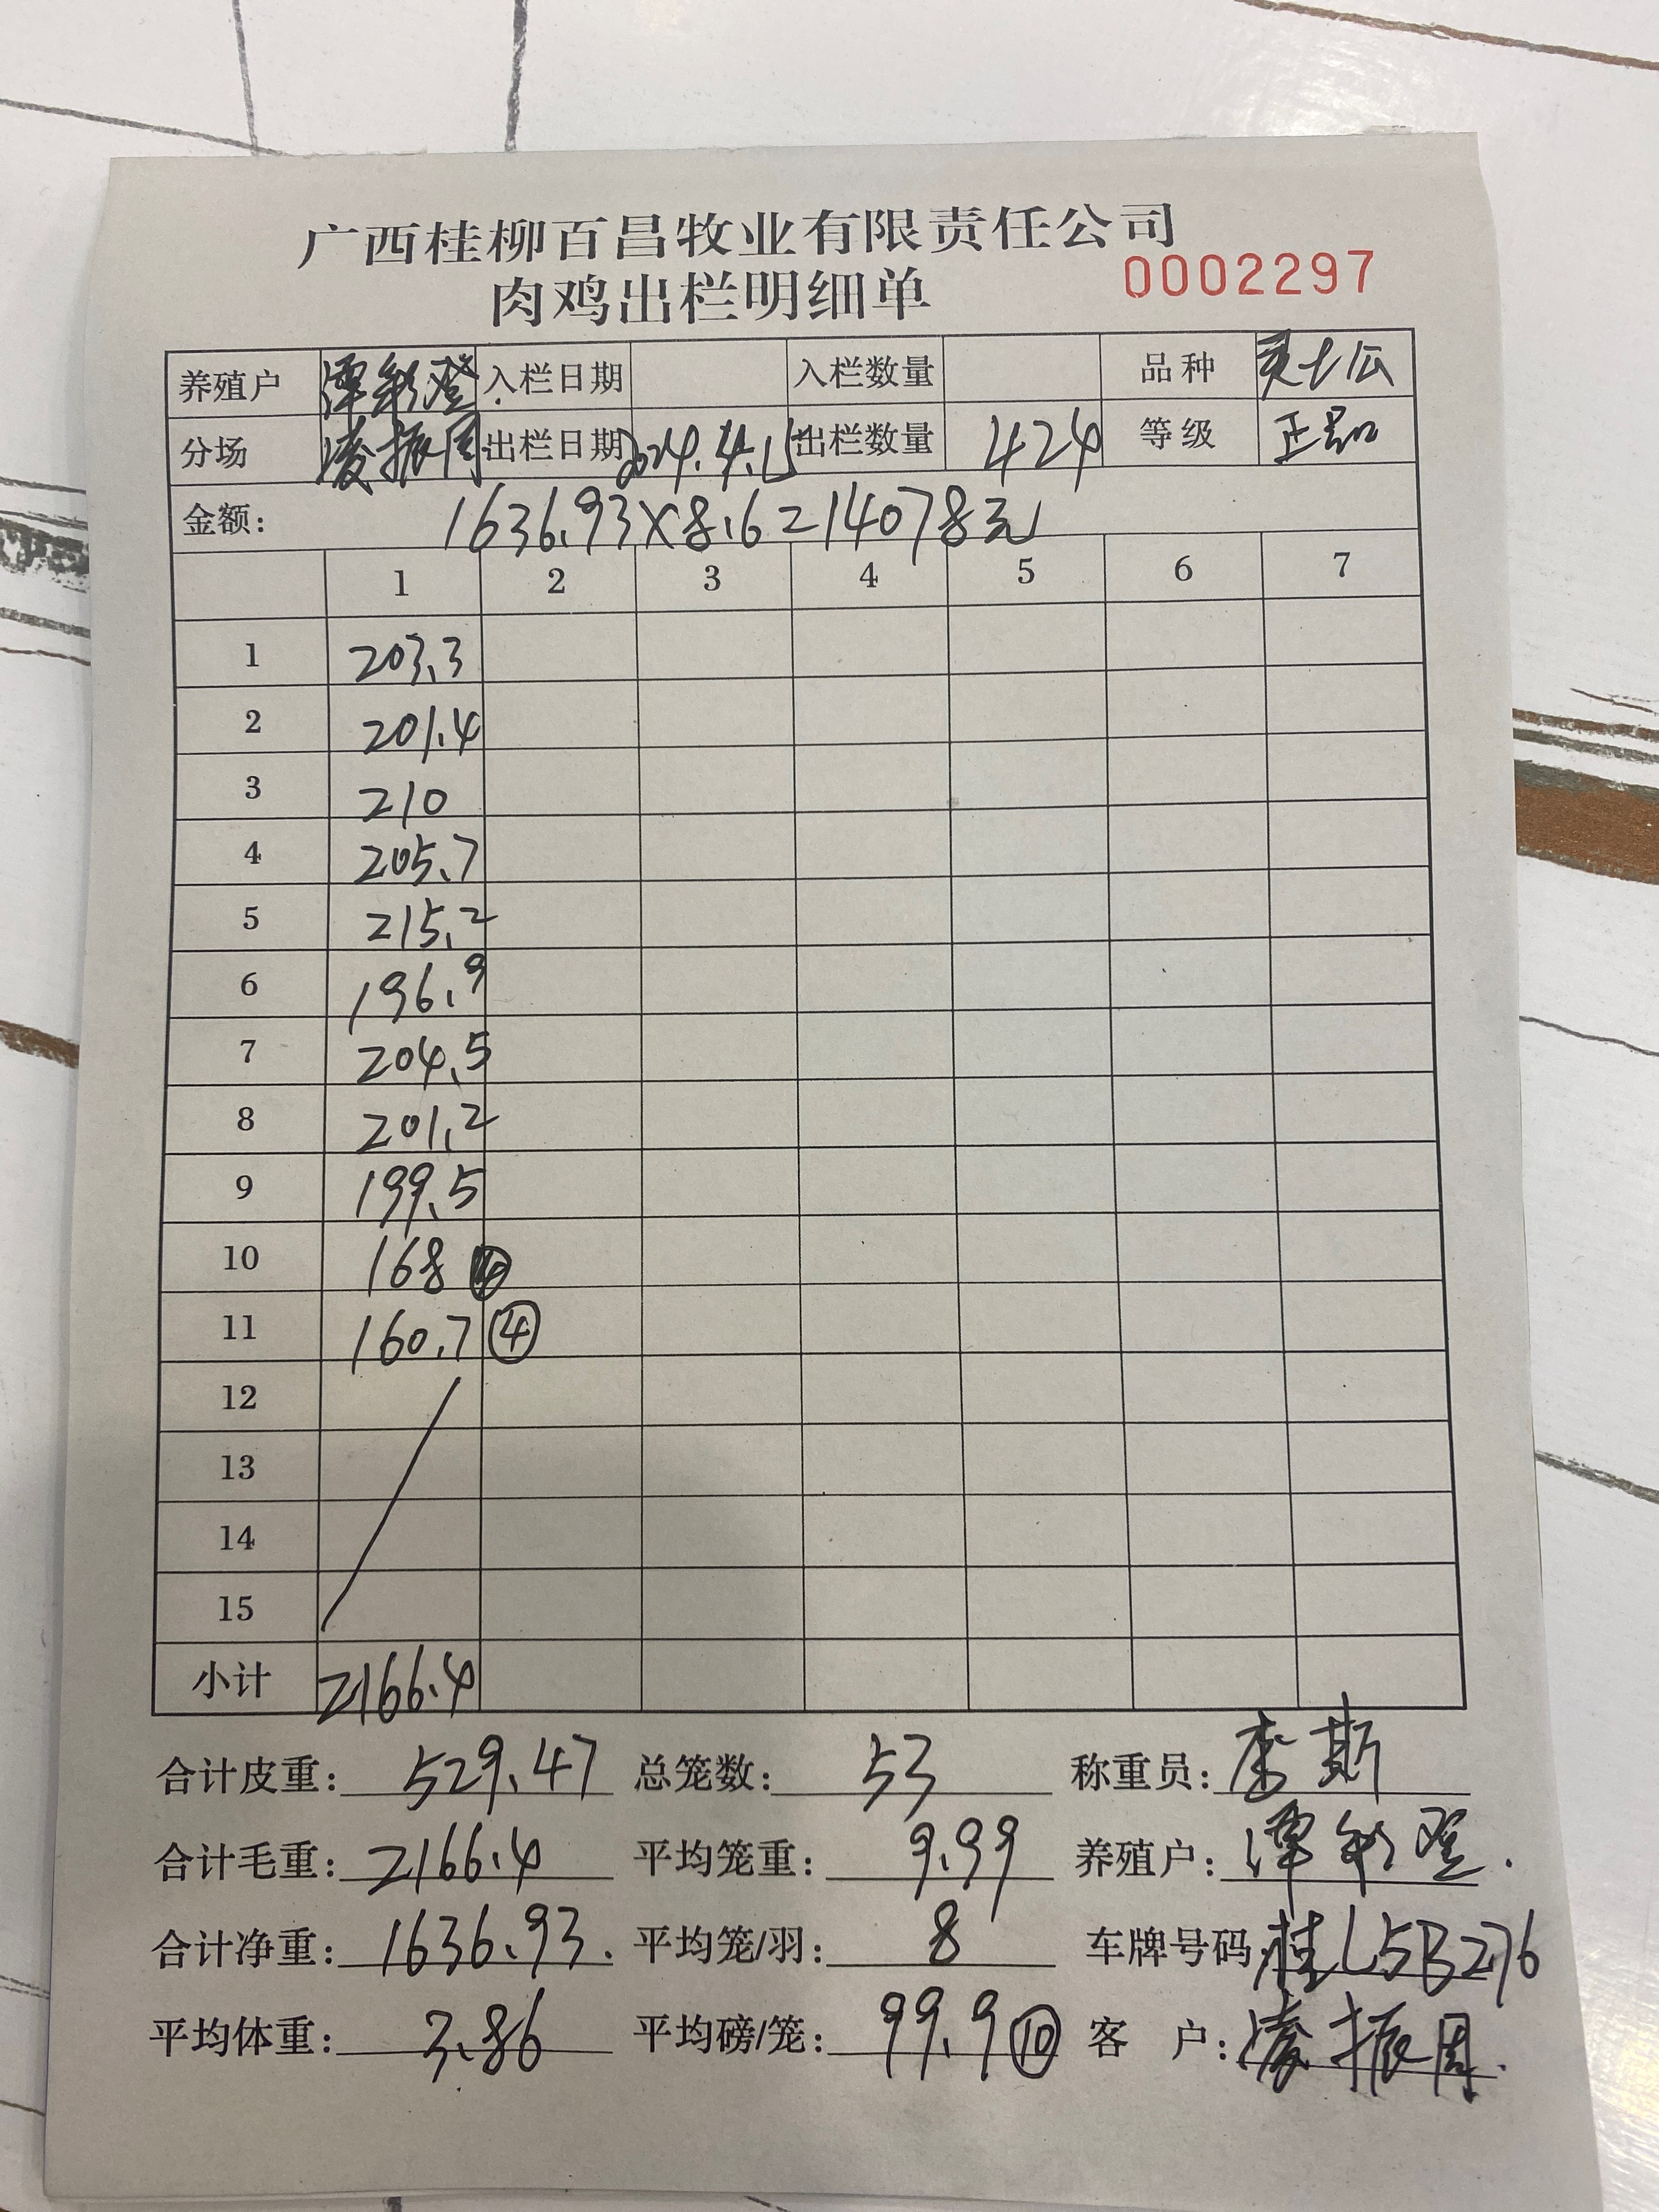 广西桂柳百昌牧业有限责任公司
肉鸡出栏明细单 0002297
养殖户 谭彩登 入栏日期 入栏数量 品种 灵土公
分场 凌振周 出栏日期 2024.4.15 出栏数量 424 等级 正品
金额: 1636.93×8.6=14078元
1 2 3 4 5 6 7
1 203.3
2 201.4
3 210
4 205.7
5 215.2
6 196.9
7 204.5
8 201.2
9 199.5
10 168
11 160.7 ④
12
13
14
15
小计 2166.4
合计皮重: 529.47 总笼数: 53 称重员: 李斯
合计毛重: 2166.4 平均笼重: 9.99 养殖户: 谭彩登.
合计净重: 1636.93. 平均笼/羽: 8 车牌号码: 桂L5B276
平均体重: 3.86 平均磅/笼: 99.9 ⑩ 客 户: 凌振周.